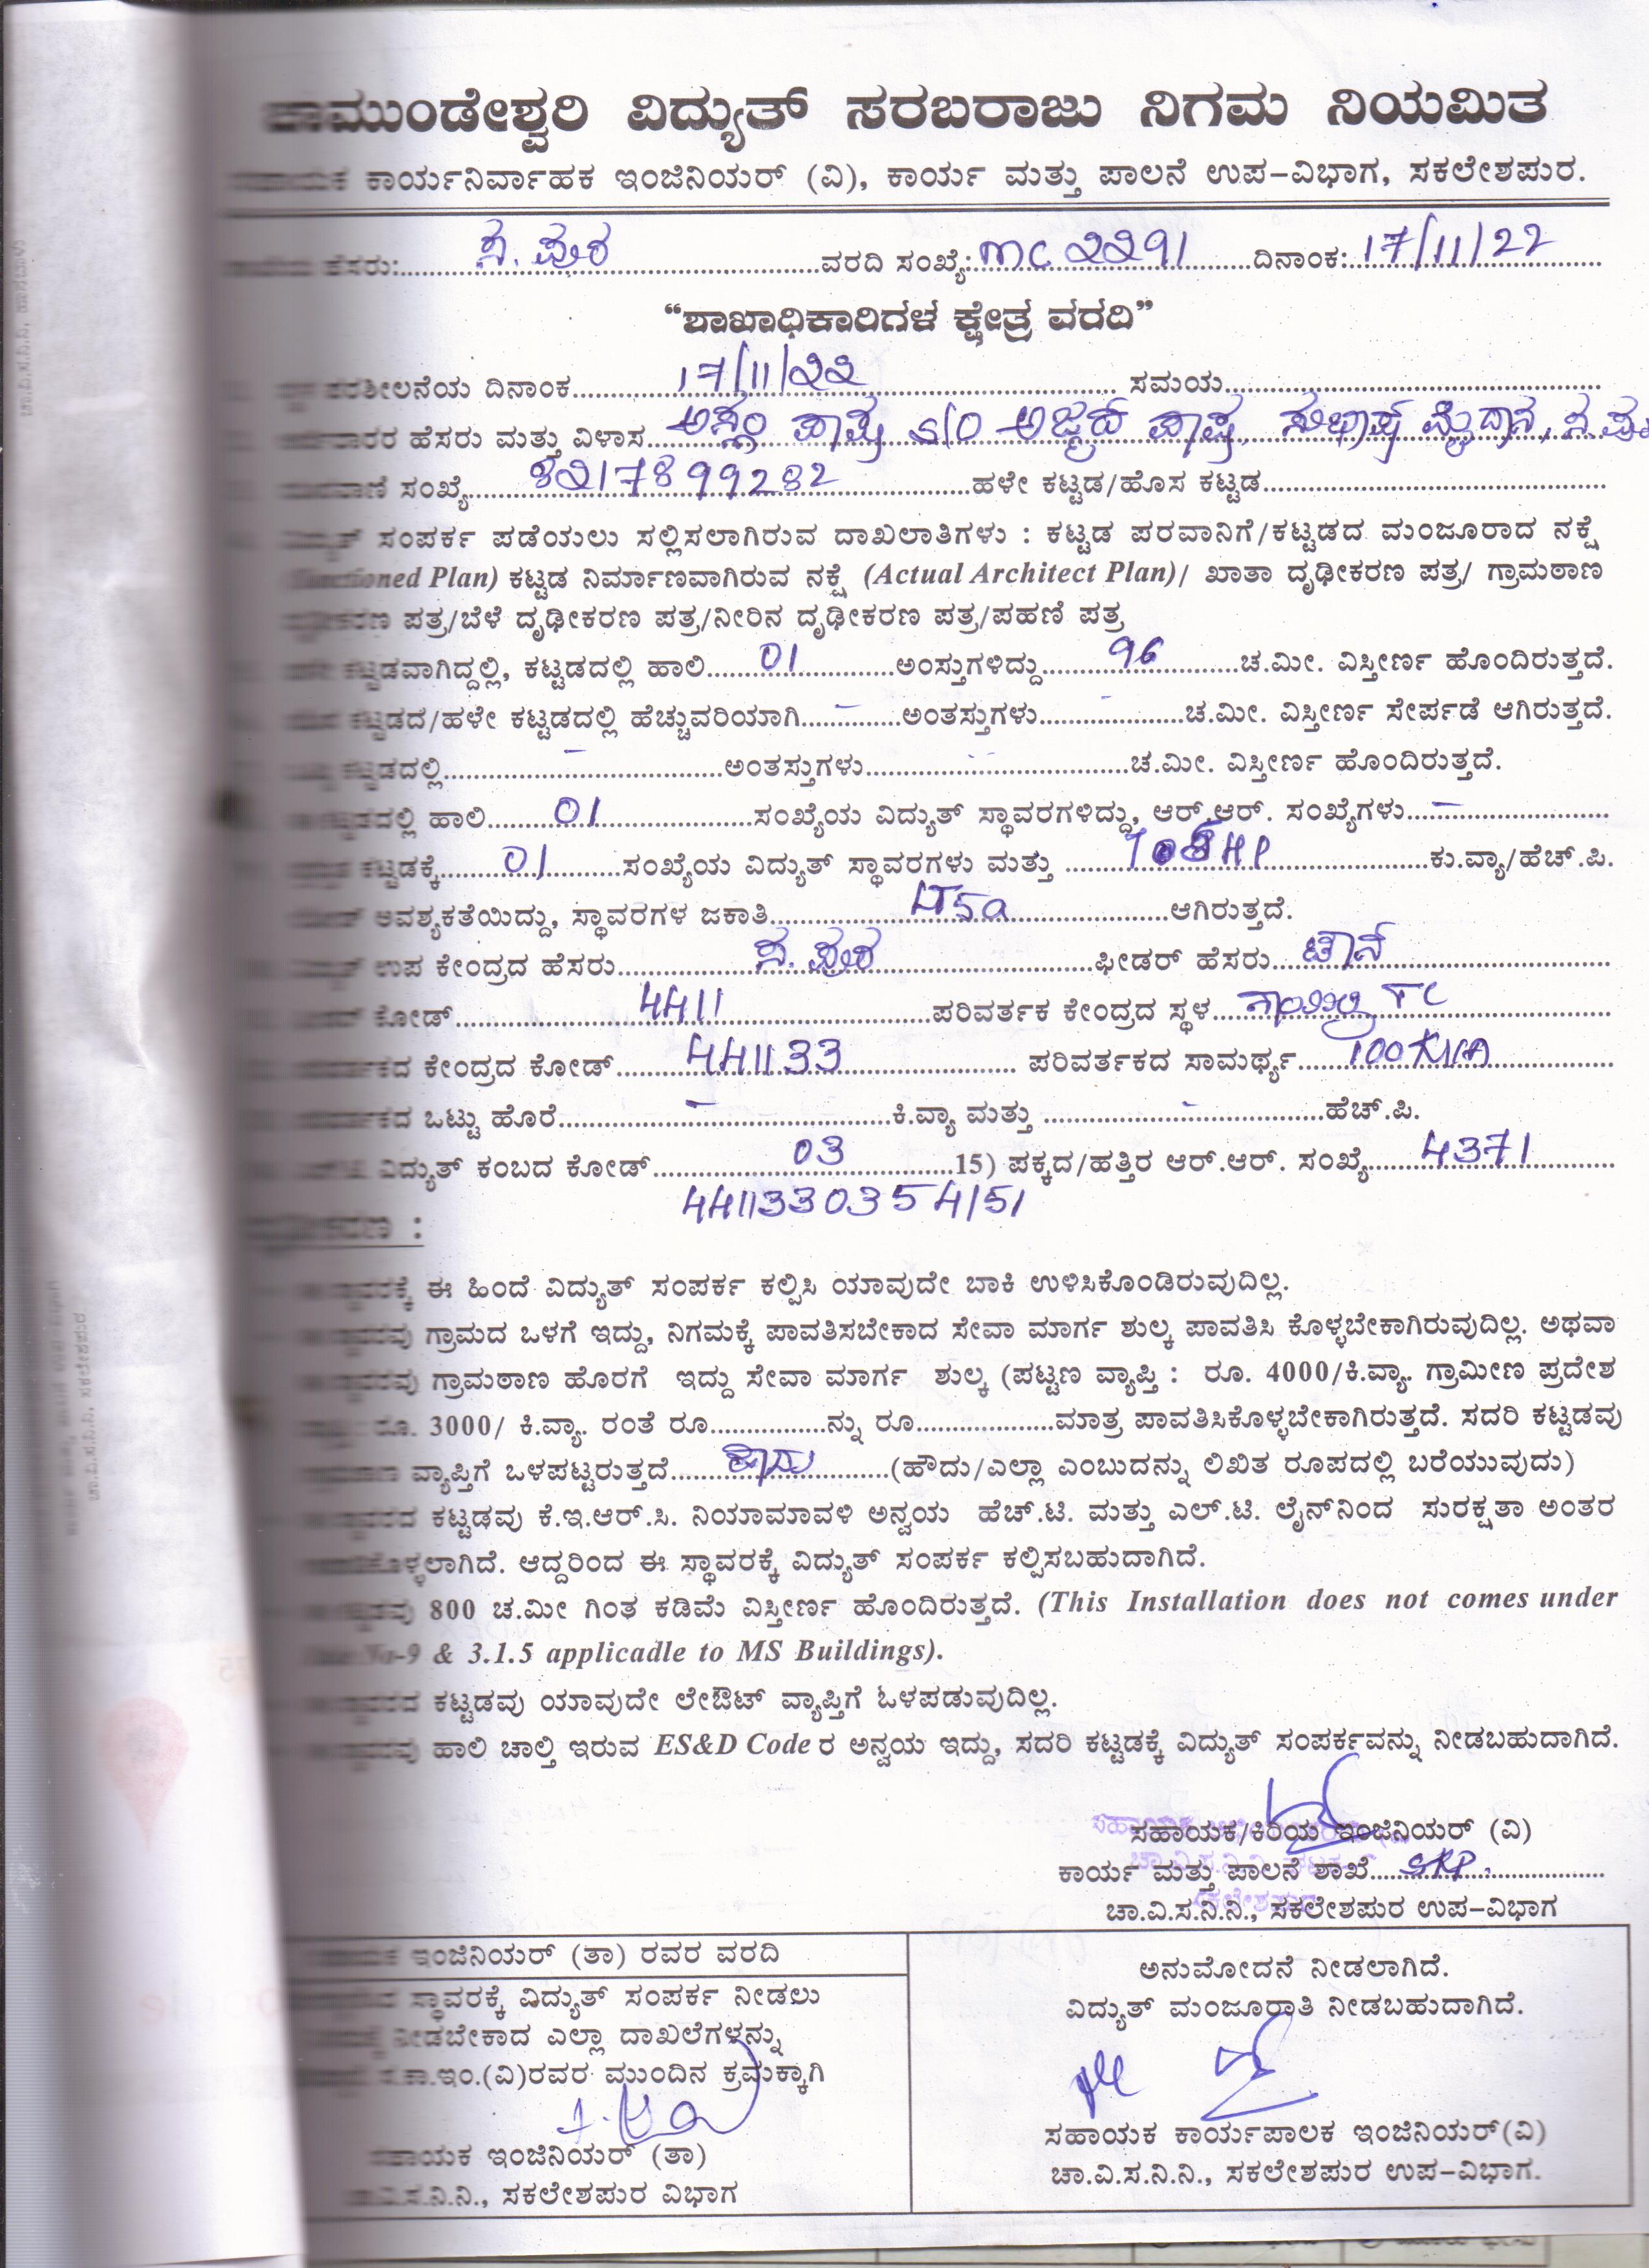 ಚಾಮುಂಡೇಶ್ವರಿ ವಿದ್ಯುತ್ ಸರಬರಾಜು ನಿಗಮ ನಿಯಮಿತ
ಸಹಾಯಕ ಕಾರ್ಯನಿರ್ವಾಹಕ ಇಂಜಿನಿಯರ್ (ವಿ), ಕಾರ್ಯ ಮತ್ತು ಪಾಲನೆ ಉಪ-ವಿಭಾಗ, ಸಕಲೇಶಪುರ.
ಹೆಸರು: ಸ. ಪುರ ವರದಿ ಸಂಖ್ಯೆ: mc 2291 ದಿನಾಂಕ: 17/11/22
“ಶಾಖಾಧಿಕಾರಿಗಳ ಕ್ಷೇತ್ರ ವರದಿ”
ಪರಶೀಲನೆಯ ದಿನಾಂಕ 17/11/22 ಸಮಯ
ಹೆಸರು ಮತ್ತು ವಿಳಾಸ ಅಸ್ಲಂ ಪಾಷ s/o ಅಜ್ಗರ್ ಪಾಷ ಸುಭಾಷ್ ಮೈದಾನ, ಸ.ಪುರ
ಸಂಖ್ಯೆ 8217899282 ಹಳೇ ಕಟ್ಟಡ/ಹೊಸ ಕಟ್ಟಡ
ವಿದ್ಯುತ್ ಸಂಪರ್ಕ ಪಡೆಯಲು ಸಲ್ಲಿಸಲಾಗಿರುವ ದಾಖಲಾತಿಗಳು : ಕಟ್ಟಡ ಪರವಾನಿಗೆ/ಕಟ್ಟಡದ ಮಂಜೂರಾದ ನಕ್ಷೆ
(Sanctioned Plan) ಕಟ್ಟಡ ನಿರ್ಮಾಣವಾಗಿರುವ ನಕ್ಷೆ (Actual Architect Plan)/ ಖಾತಾ ದೃಢೀಕರಣ ಪತ್ರ/ ಗ್ರಾಮಠಾಣ
ದೃಢೀಕರಣ ಪತ್ರ/ಬೆಳೆ ದೃಢೀಕರಣ ಪತ್ರ/ನೀರಿನ ದೃಢೀಕರಣ ಪತ್ರ/ಪಹಣಿ ಪತ್ರ
ಕಟ್ಟಡವಾಗಿದ್ದಲ್ಲಿ, ಕಟ್ಟಡದಲ್ಲಿ ಹಾಲಿ 01 ಅಂಸ್ತುಗಳಿದ್ದು 96 ಚ.ಮೀ. ವಿಸ್ತೀರ್ಣ ಹೊಂದಿರುತ್ತದೆ.
ಕಟ್ಟಡದ/ಹಳೇ ಕಟ್ಟಡದಲ್ಲಿ ಹೆಚ್ಚುವರಿಯಾಗಿ - ಅಂತಸ್ತುಗಳು - ಚ.ಮೀ. ವಿಸ್ತೀರ್ಣ ಸೇರ್ಪಡೆ ಆಗಿರುತ್ತದೆ.
ಕಟ್ಟಡದಲ್ಲಿ - ಅಂತಸ್ತುಗಳು - ಚ.ಮೀ. ವಿಸ್ತೀರ್ಣ ಹೊಂದಿರುತ್ತದೆ.
ಹಾಲಿ 01 ಸಂಖ್ಯೆಯ ವಿದ್ಯುತ್ ಸ್ಥಾವರಗಳಿದ್ದು, ಆರ್.ಆರ್. ಸಂಖ್ಯೆಗಳು -
ಕಟ್ಟಡಕ್ಕೆ 01 ಸಂಖ್ಯೆಯ ವಿದ್ಯುತ್ ಸ್ಥಾವರಗಳು ಮತ್ತು HP ಕು.ವ್ಯಾ/ಹೆಚ್.ಪಿ.
ಅವಶ್ಯಕತೆಯಿದ್ದು, ಸ್ಥಾವರಗಳ ಜಕಾತಿ LT5a ಆಗಿರುತ್ತದೆ.
ಉಪ ಕೇಂದ್ರದ ಹೆಸರು ಸ. ಪುರ ಫೀಡರ್ ಹೆಸರು ಟೌನ್
ಕೋಡ್ 4411 ಪರಿವರ್ತಕ ಕೇಂದ್ರದ ಸ್ಥಳ TC
ಕೇಂದ್ರದ ಕೋಡ್ 441133 ಪರಿವರ್ತಕದ ಸಾಮರ್ಥ್ಯ 100 KVA
ಒಟ್ಟು ಹೊರೆ - ಕಿ.ವ್ಯಾ ಮತ್ತು - ಹೆಚ್.ಪಿ.
ವಿದ್ಯುತ್ ಕಂಬದ ಕೋಡ್ 03 15) ಪಕ್ಕದ/ಹತ್ತಿರ ಆರ್.ಆರ್. ಸಂಖ್ಯೆ 4371
4411330354151
ಈ ಹಿಂದೆ ವಿದ್ಯುತ್ ಸಂಪರ್ಕ ಕಲ್ಪಿಸಿ ಯಾವುದೇ ಬಾಕಿ ಉಳಿಸಿಕೊಂಡಿರುವುದಿಲ್ಲ.
ಗ್ರಾಮದ ಒಳಗೆ ಇದ್ದು, ನಿಗಮಕ್ಕೆ ಪಾವತಿಸಬೇಕಾದ ಸೇವಾ ಮಾರ್ಗ ಶುಲ್ಕ ಪಾವತಿಸಿ ಕೊಳ್ಳಬೇಕಾಗಿರುವುದಿಲ್ಲ. ಅಥವಾ
ಗ್ರಾಮಠಾಣ ಹೊರಗೆ ಇದ್ದು ಸೇವಾ ಮಾರ್ಗ ಶುಲ್ಕ (ಪಟ್ಟಣ ವ್ಯಾಪ್ತಿ : ರೂ. 4000/ಕಿ.ವ್ಯಾ. ಗ್ರಾಮೀಣ ಪ್ರದೇಶ
ರೂ. 3000/ ಕಿ.ವ್ಯಾ. ರಂತೆ ರೂ ನ್ನು ರೂ ಮಾತ್ರ ಪಾವತಿಸಿಕೊಳ್ಳಬೇಕಾಗಿರುತ್ತದೆ. ಸದರಿ ಕಟ್ಟಡವು
ವ್ಯಾಪ್ತಿಗೆ ಒಳಪಟ್ಟರುತ್ತದೆ ಹೌದು (ಹೌದು/ಎಲ್ಲಾ ಎಂಬುದನ್ನು ಲಿಖಿತ ರೂಪದಲ್ಲಿ ಬರೆಯುವುದು)
ಕಟ್ಟಡವು ಕೆ.ಇ.ಆರ್.ಸಿ. ನಿಯಾಮಾವಳಿ ಅನ್ವಯ ಹೆಚ್.ಟಿ. ಮತ್ತು ಎಲ್.ಟಿ. ಲೈನ್‌ನಿಂದ ಸುರಕ್ಷತಾ ಅಂತರ
ಆದ್ದರಿಂದ ಈ ಸ್ಥಾವರಕ್ಕೆ ವಿದ್ಯುತ್ ಸಂಪರ್ಕ ಕಲ್ಪಿಸಬಹುದಾಗಿದೆ.
800 ಚ.ಮೀ ಗಿಂತ ಕಡಿಮೆ ವಿಸ್ತೀರ್ಣ ಹೊಂದಿರುತ್ತದೆ. (This Installation does not comes under
No-9 & 3.1.5 applicadle to MS Buildings).
ಕಟ್ಟಡವು ಯಾವುದೇ ಲೇಔಟ್ ವ್ಯಾಪ್ತಿಗೆ ಓಳಪಡುವುದಿಲ್ಲ.
ಹಾಲಿ ಚಾಲ್ತಿ ಇರುವ ES&D Code ರ ಅನ್ವಯ ಇದ್ದು, ಸದರಿ ಕಟ್ಟಡಕ್ಕೆ ವಿದ್ಯುತ್ ಸಂಪರ್ಕವನ್ನು ನೀಡಬಹುದಾಗಿದೆ.
ಸಹಾಯಕ/ಕಿರಿಯ ಇಂಜಿನಿಯರ್ (ವಿ)
ಕಾರ್ಯ ಮತ್ತು ಪಾಲನೆ ಶಾಖೆ SKP
ಚಾ.ವಿ.ಸ.ನಿ.ನಿ., ಸಕಲೇಶಪುರ ಉಪ-ವಿಭಾಗ
ಇಂಜಿನಿಯರ್ (ತಾ) ರವರ ವರದಿ
ಸ್ಥಾವರಕ್ಕೆ ವಿದ್ಯುತ್ ಸಂಪರ್ಕ ನೀಡಲು
ನೀಡಬೇಕಾದ ಎಲ್ಲಾ ದಾಖಲೆಗಳನ್ನು
ಸ.ಕಾ.ಇಂ.(ವಿ)ರವರ ಮುಂದಿನ ಕ್ರಮಕ್ಕಾಗಿ
ಸಹಾಯಕ ಇಂಜಿನಿಯರ್ (ತಾ)
ಚಾ.ವಿ.ಸ.ನಿ.ನಿ., ಸಕಲೇಶಪುರ ವಿಭಾಗ
ಅನುಮೋದನೆ ನೀಡಲಾಗಿದೆ.
ವಿದ್ಯುತ್ ಮಂಜೂರಾತಿ ನೀಡಬಹುದಾಗಿದೆ.
ಸಹಾಯಕ ಕಾರ್ಯಪಾಲಕ ಇಂಜಿನಿಯರ್(ವಿ)
ಚಾ.ವಿ.ಸ.ನಿ.ನಿ., ಸಕಲೇಶಪುರ ಉಪ-ವಿಭಾಗ.